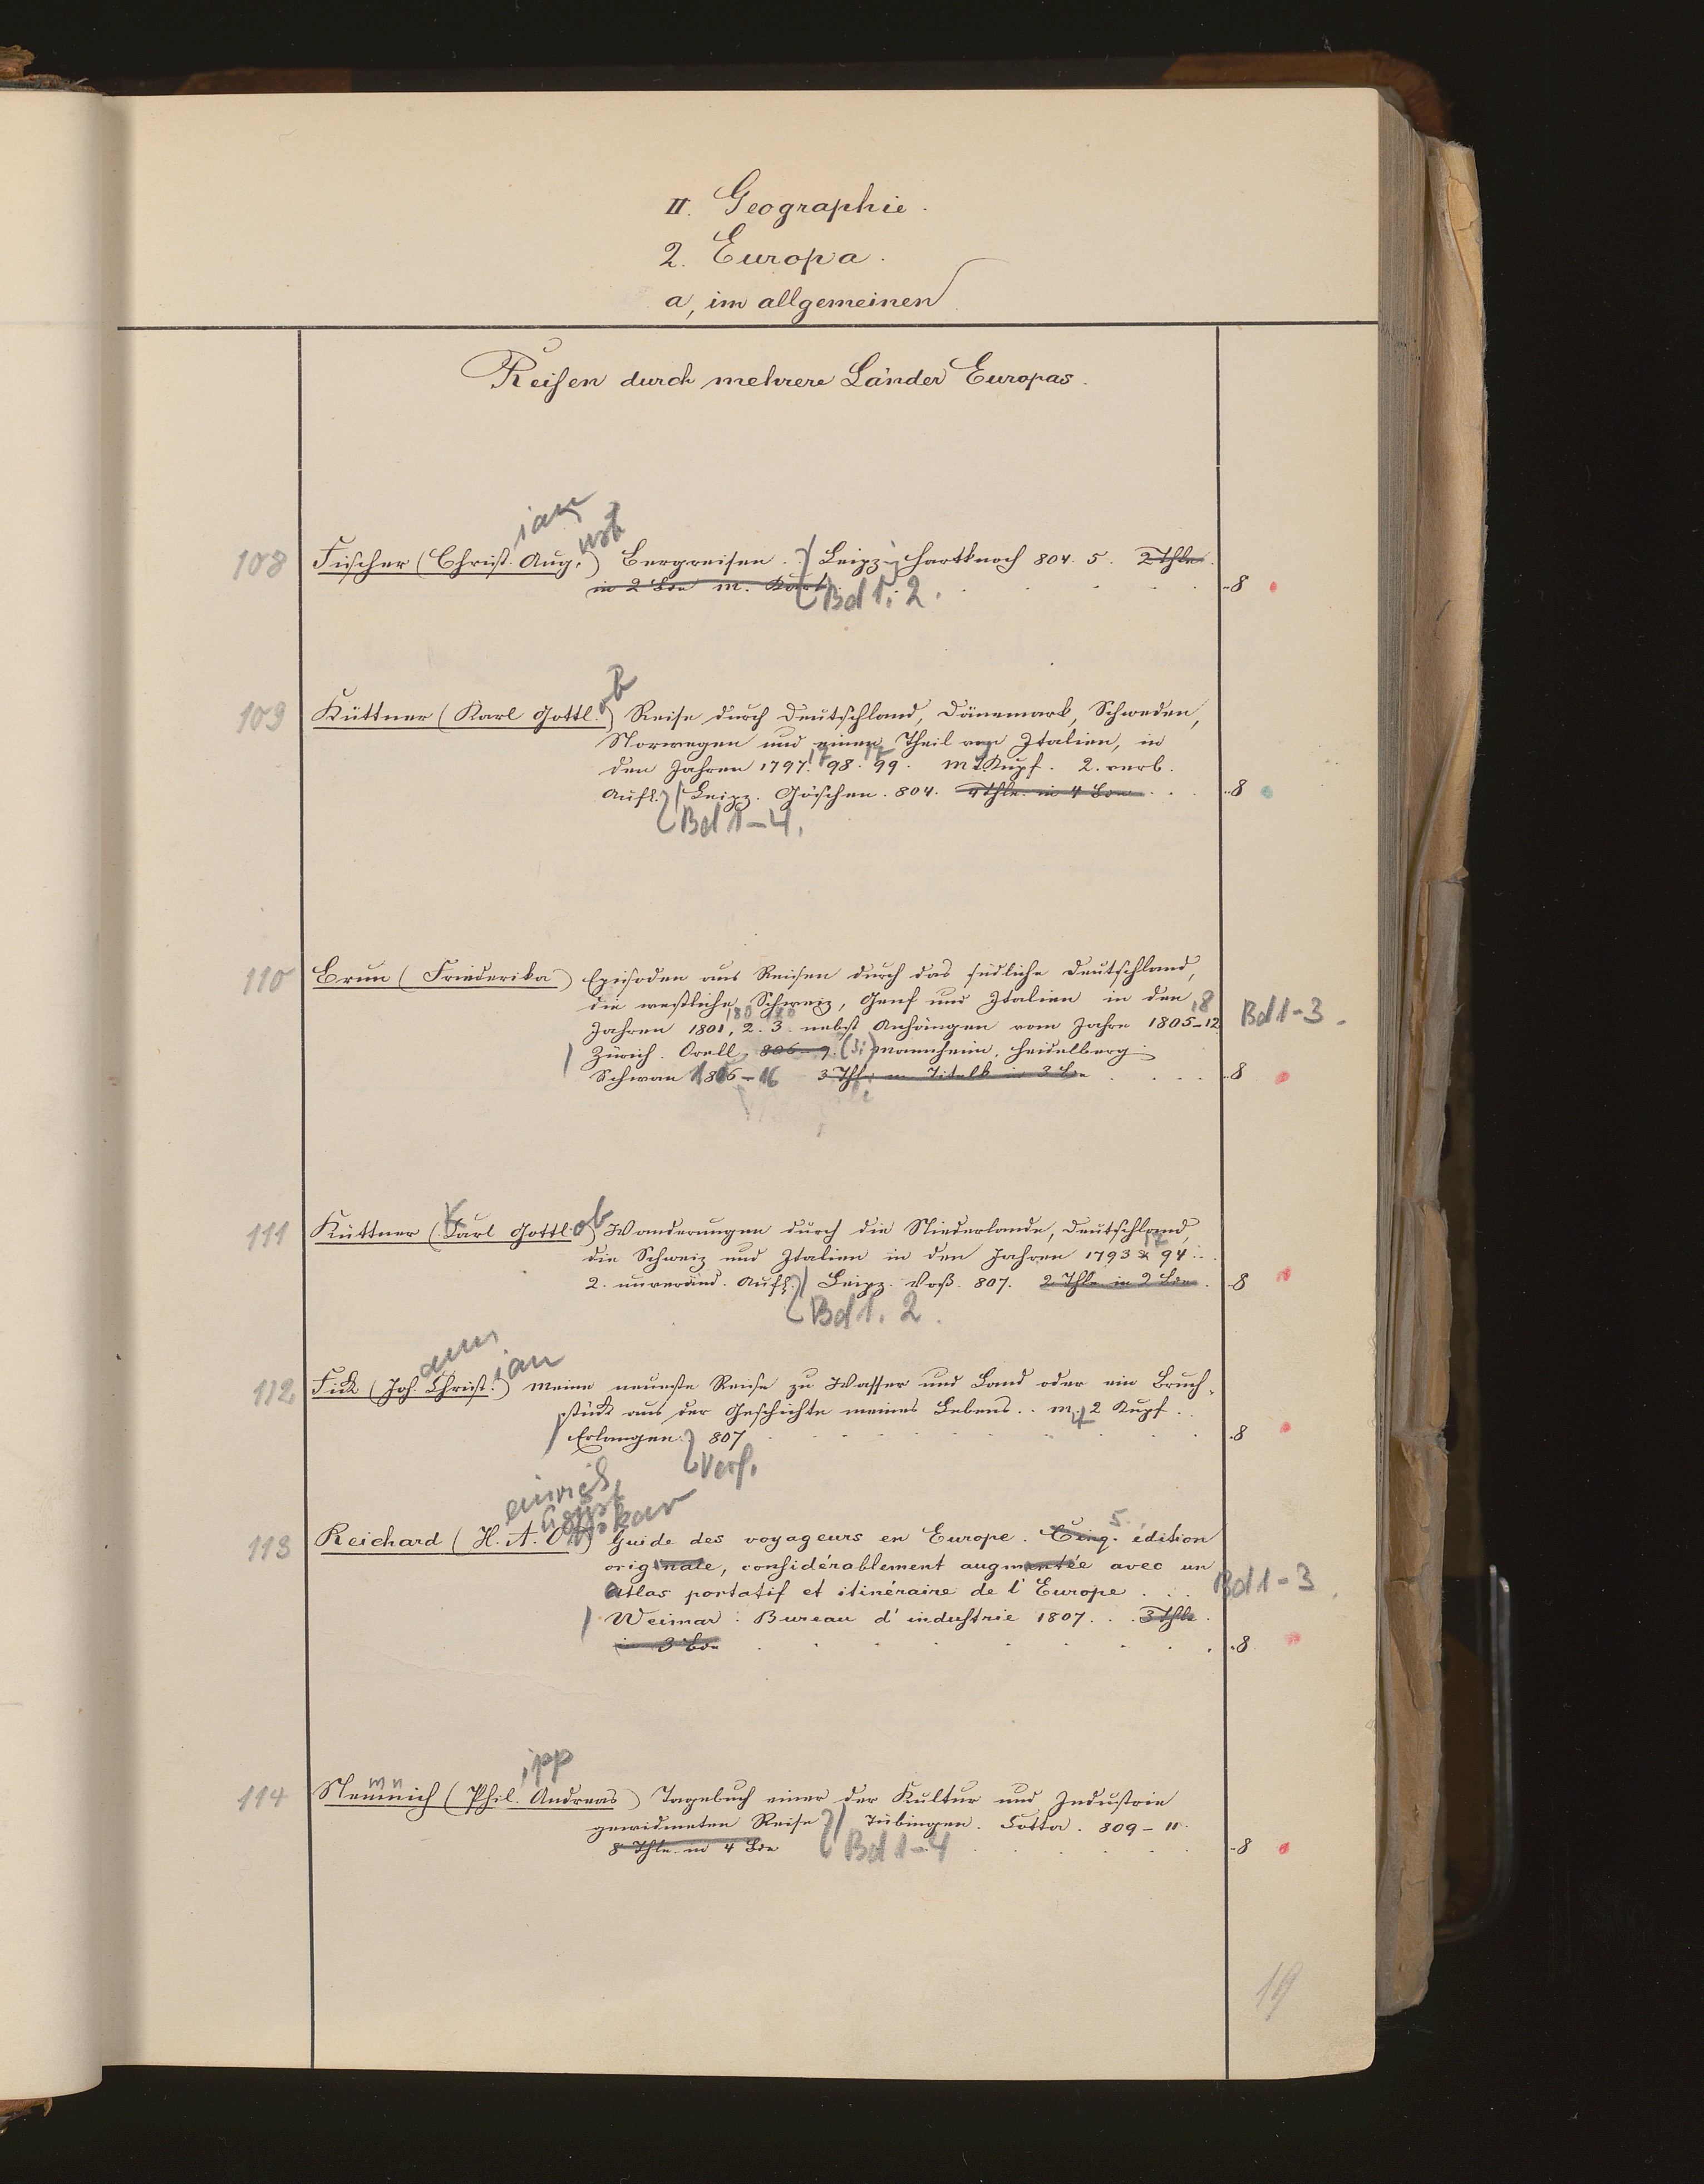 II. Geographie.
2. Europa.
a, im allgemeinen
Reisen durch mehrere Länder Europas.
108 Fischer (Christ.ian Aug.ust) Bergreisen. Leipz. Hartknoch 804. 5. 2 Thle.
in 2 Bde m. Kart. Bd 1. 2. 8
109 Küttner (Karl Gottl.ob) Reise durch Deutschland, Dänemark, Schweden,
Norwegen und einen Theil von Italien, in
den Jahren 1797. 1798. 1799. M. Kupf. 2. verb.
Aufl. Leipz. Göschen. 804. 4 Thle. in 4 Bde 8
Bd 1-4.
110 Brun (Friederika) Episoden aus Reisen durch das südliche Deutschland,
die westliche Schweiz, Genf und Italien in den
Jahren 1801, 1802. 1803. nebst Anhängen vom Jahre 1805-1812 Bd 1-3.
Zürich. Orell. 806-9. (3:) Mannheim, Heidelberg
Schwan 1806-16 3 Thle m Titelk in 3 Bde 8
111 Küttner (Karl Gottl.ob) Wanderungen durch die Niederlande, Deutschland,
die Schweiz und Italien in den Jahren 1793 & 1794.
2. unveränd. Aufl. Leipz. Voß. 807. 2 Thle in 2 Bde. 8
Bd 1. 2.
112 Fick (Joh.ann Christ.ian) Meine neueste Reise zu Wasser und Land oder ein Bruch-
stück aus der Geschichte meines Lebens. M. 2 Kupf.
Erlangen. 807 8
Verf.
113 Reichard (H.einrich A.ugust O.ttokar) Guide des voyageurs en Europe. Cinq. 5. édition
originale, considérablement augmentée avec un
Atlas portatif et itinéraire de l'Europe Bd 1-3.
Weimar. Bureau d'industrie 1807. 3 Thle.
in 3 Bde 8
114 Nemnich (Phil.ipp Andreas) Tagebuch einer der Kultur und Industrie
gewidmeten Reise Tübingen. Cotta. 809-11.
8 Thle. in 4 Bde Bd 1-4 8
19